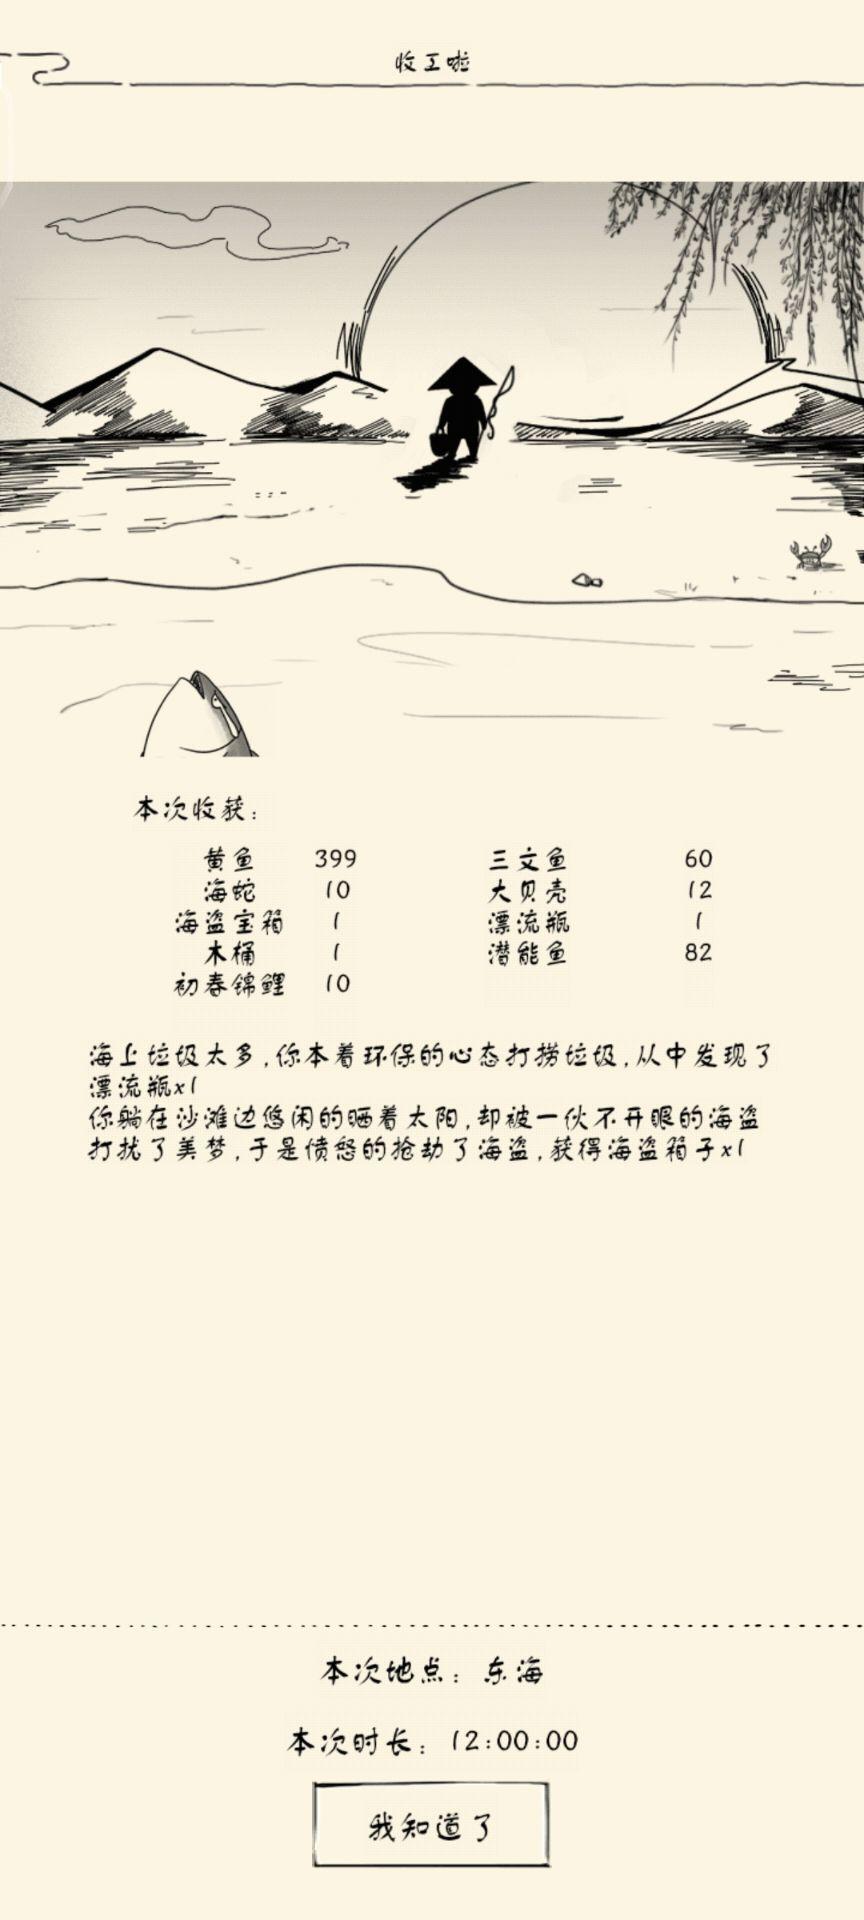 收工啦
本次收获：
黄鱼 399 三文鱼 60
海蛇 10 大贝壳 12
海盗宝箱 1 漂流瓶 1
木桶 1 潜能鱼 82
初春锦鲤 10
海上垃圾太多,你本着环保的心态打捞垃圾,从中发现了
漂流瓶x1
你躺在沙滩边悠闲的晒着太阳,却被一伙不开眼的海盗
打扰了美梦,于是愤怒的抢劫了海盗,获得海盗箱子x1
本次地点：东海
本次时长：12:00:00
我知道了